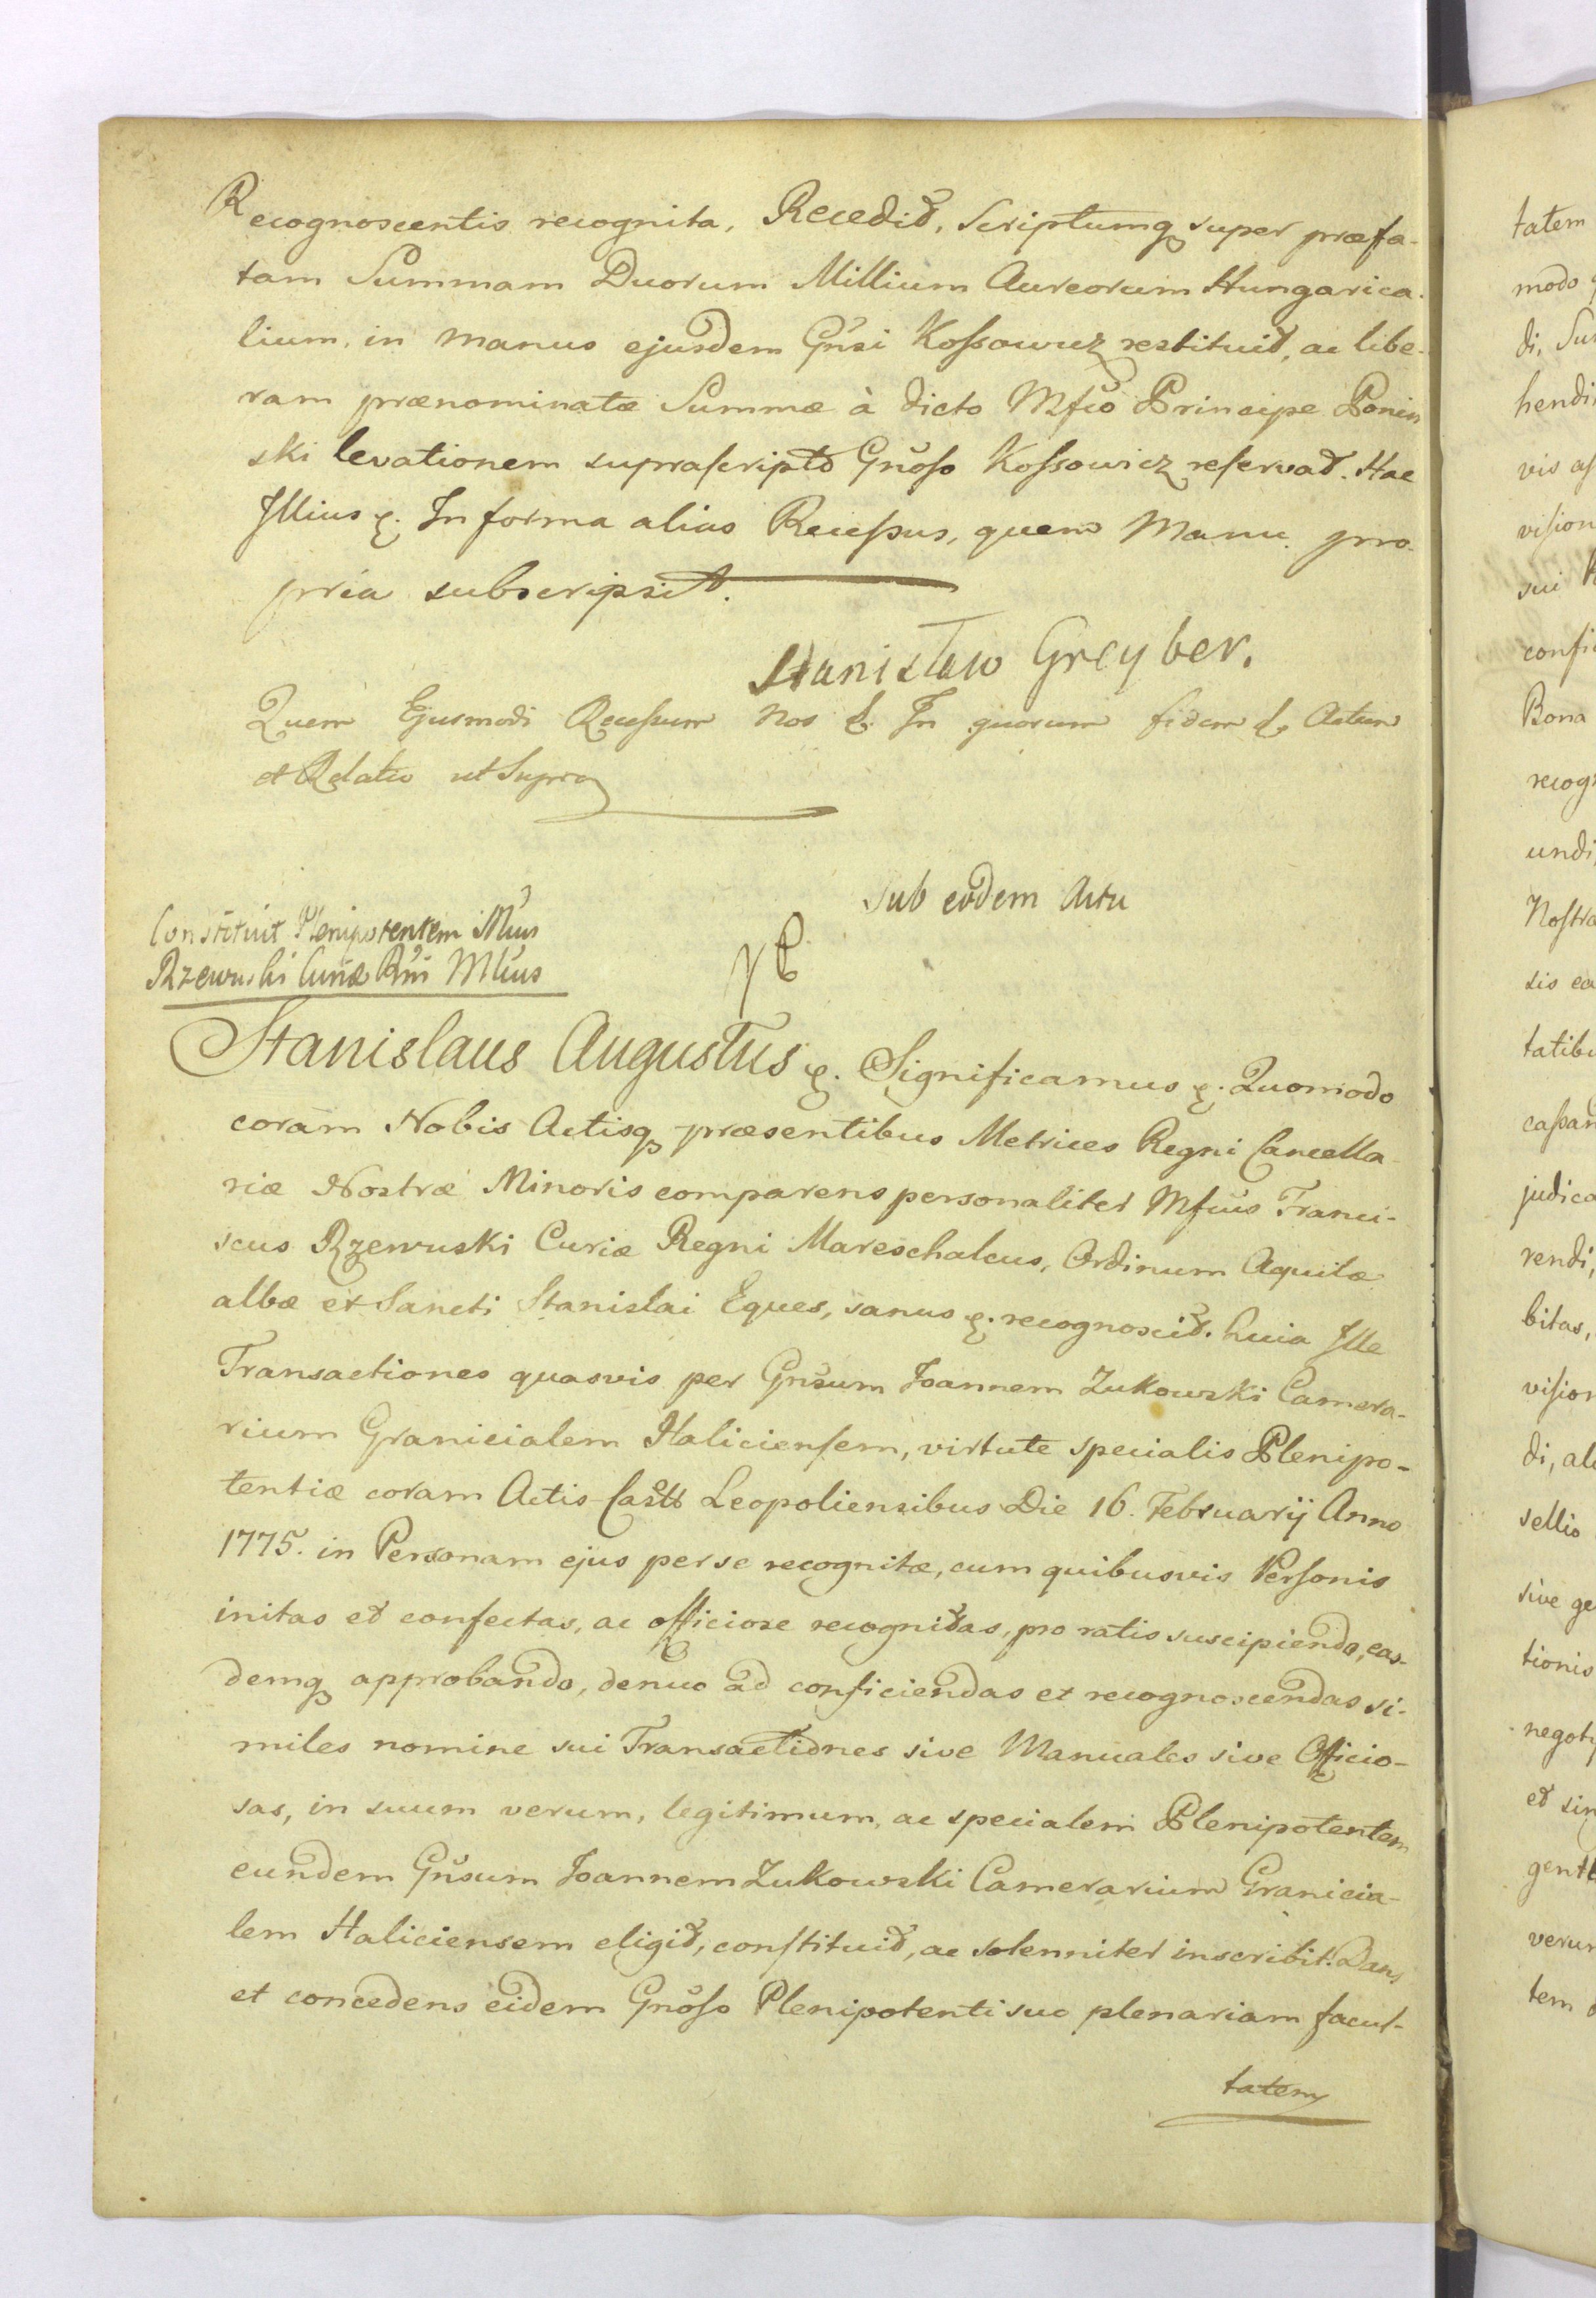 Recognoscentis recognita, Recedit, Scriptumq super præfa-
tam Summam Duorum Millium Aureorum Hungarica-
lium, in manus ejusdem Gnsi Kossowicz restituit, ac libe-
ram prænominatæ Summæ à dicto Mfco Principe Ponin
ski levationem suprascripto Gnoso Kossowicz reservat. Hac
Illius &. In forma alias Recessus, quem Manu pro-
pria subscripsit.
Stanisław Greyber.
Quem Ejusmodi Recessum Nos &. In quorum fidem &. Actum
et Relatio ut Supra
Sub eodem Actu
Constituit Plenipotentem Mcus
Rzewuski Curiæ Rni Mlcus
Stanislaus Augustus &. Significamus &. Quomodo
coram Nobis Actisq præsentibus Metrices Regni Cancella-
riæ Nostræ Minoris comparens personaliter Mfcus Franci-
scus Rzewuski Curiæ Regni Mareschalcus, Ordinum Aquilæ
albæ et Sancti Stanislai Eques, sanus &. recognoscit. Quia Ille
Transactiones quasvis per Gnsum Joannem Zukowski Camera-
rium Granicialem Haliciensem, virtute specialis Plenipo-
tentiæ coram Actis Castr Leopoliensibus Die 16. Februarij Anno
1775. in Personam ejus per se recognitæ, cum quibusvis Personis
initas et confectas, ac officiose recognitas, pro ratis suscipiendo, eas-
demq approbando, denuo ad conficiendas et recognoscendas si-
miles nomine sui Transactiones sive Manuales sive Officio-
sas, in suum verum, legitimum, ac specialem Plenipotentem
eundem Gnsum Joannem Zukowski Camerarium Granicia-
lem Haliciensem eligit, constituit, ac solenniter inscribit. Dans
et concedens eidem Gnoso Plenipotenti suo plenariam facul-
tatem
tatem
modo
di,
hendi
vis
vision
sui
Bona
recog
undi
Nostra
sis
tatibu
cassan
judica
rendi,
bitas,
vision
di,
sellis
sive ge
tionis
negoty
et sin
gent
verum
tem